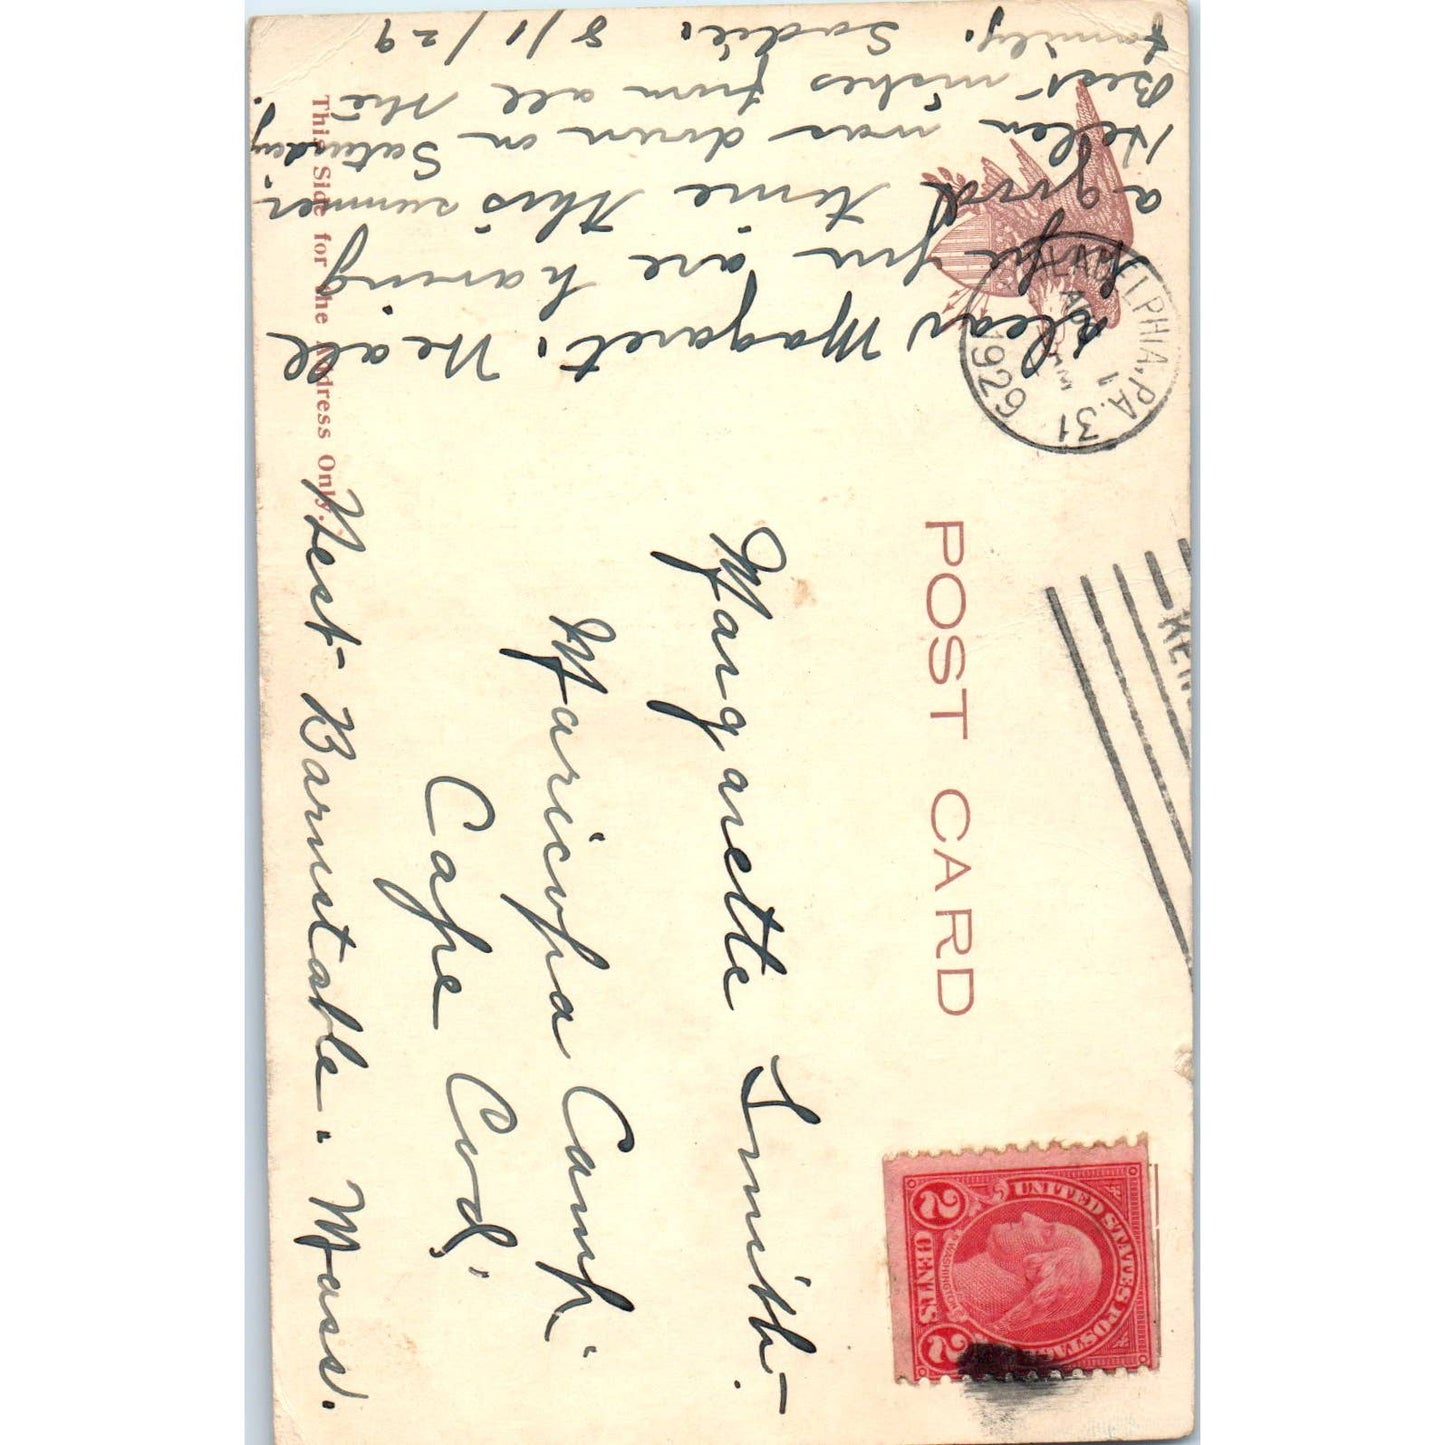 POST CARD
This Side for the Address Only.
PHILADELPHIA, PA. 31
AUG
1
1929
UNITED STATES POSTAGE
WASHINGTON
2 CENTS 2
Margarette Smith.
Maricopa Camp.
Cape Cod.
West-Barnstable. Mass.
Dear Magaret. We all
hope you are having
a good time this summer.
Helen was down on Saturday.
Best wishes from all the
family. Sadie. 8/1/29